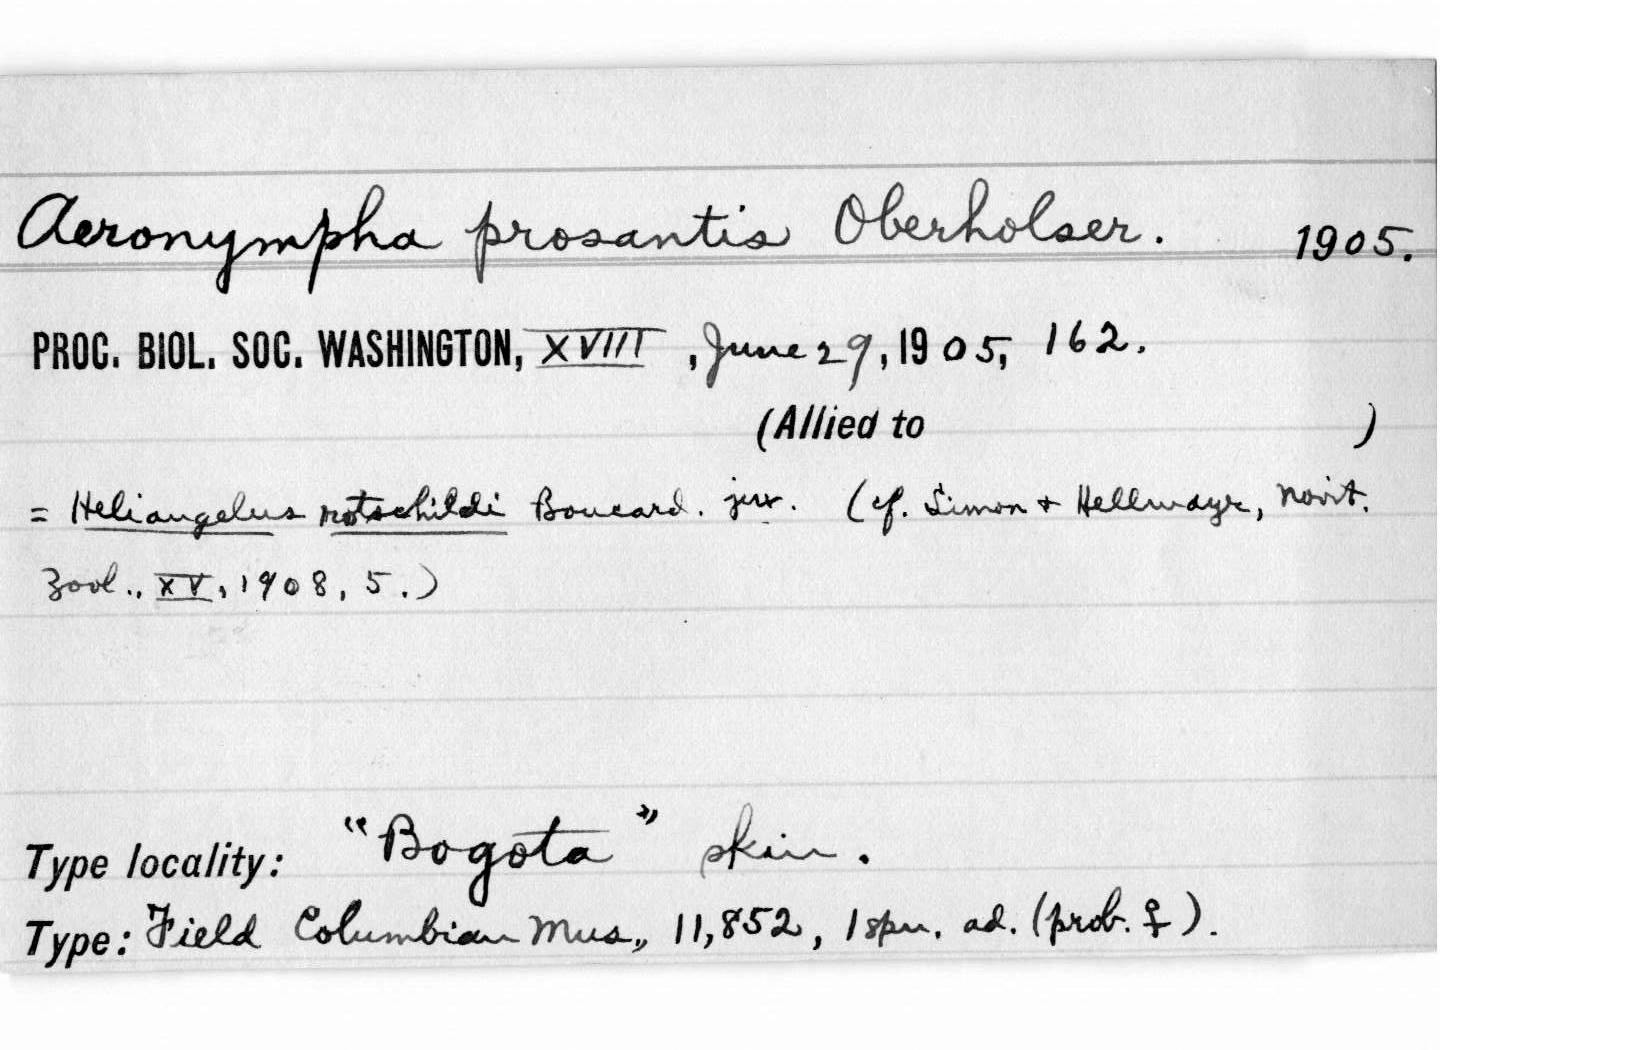 Aeronympha prosantis Oberholser. 1905.
PROC. BIOL. SOC. WASHINGTON, XVIII, June 29, 1905, 162.
(Allied to )
= Heliangelus rotschildi Boucard. juv. (cf. Simon + Hellmayr, Novit.
Zool., XV, 1908, 5.)
Type locality: "Bogota" skin.
Type: Field Columbian Mus., 11,852, 1 spm. ad. (prob. ♀).